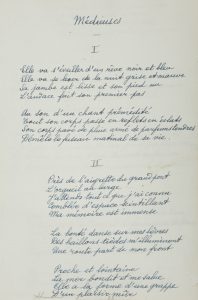 Méduses
I
Elle va s'éveiller d'un rêve noir et bleu
Elle va se lever de la nuit grise et mauve
Sa jambe est lisse et son pied nu
L'audace fait son premier pas
Au son d'un chant prémédité
Tout son corps passe en reflets en éclats
Son corps pavé de pluie armé de parfums tendres
Démêle le fuseau matinal de sa vie.
II
Près de l'aigrette du grand pont
L'orgueil au large
J'attends tout ce que j'ai connu
Comblée d'espace scintillant
Ma mémoire est immense
La bonté danse sur mes lèvres
Des haillons tièdes m'illuminent
Une route part de mon front
Proche et lointaine
La mer bondit et me salue
Elle a la forme d'une grappe
D'un plaisir mûr